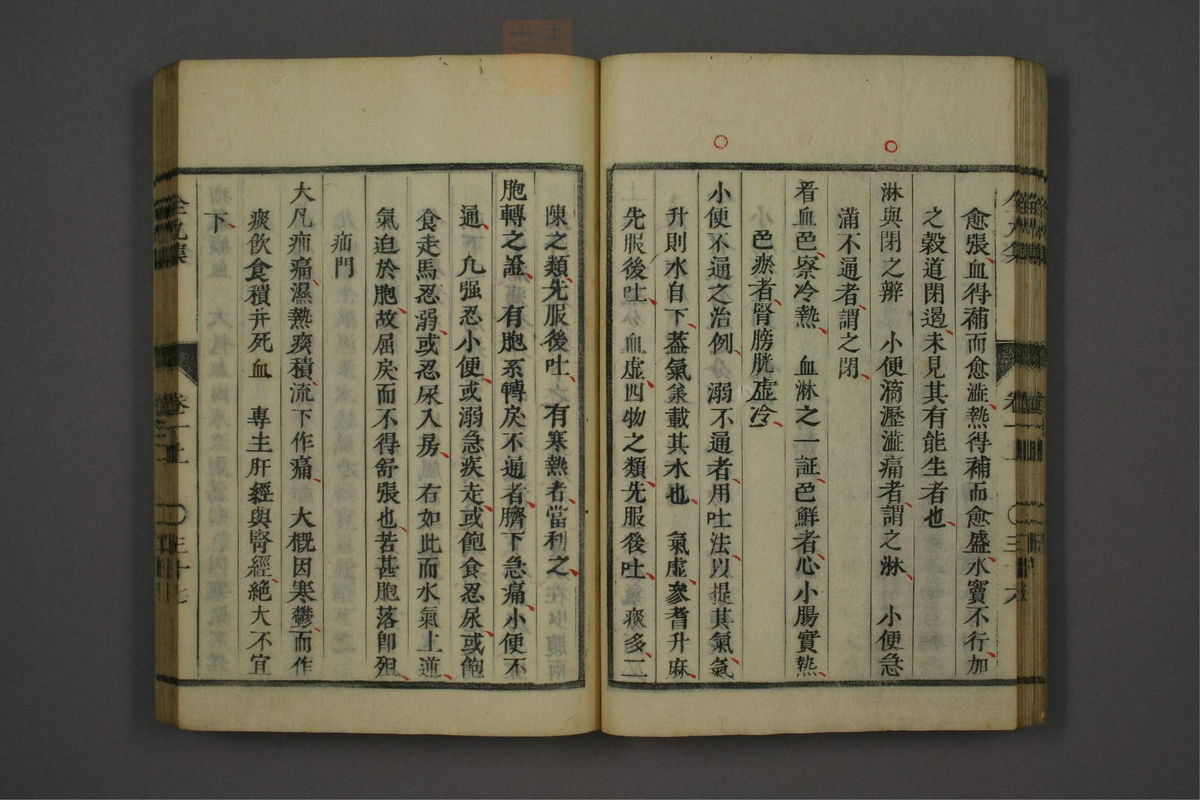 愈張血得補而愈澁熱得補而愈盛水竇不行加
之穀道閉遏未見其有能生者也
淋與閉之辨 小便滴瀝澁痛者謂之淋 小便急
滿不通者謂之閉
看血色寮冷熱 血淋之一証色鮮者心小腸實熱
色瘀者腎膀胱虚冷
小便不通之治例 溺不通者用吐法以提其氣氣
升則水自下葢氣兼載其水也 氣虚參耆升麻
先服後吐 血虚四物之類先服後吐 痰多二
陳之類先服後吐 有寒熱者當利之
胞轉之證 有胞系轉戾不通者臍下急痛小便不
通 凢强忍小便或溺急疾走或飽食忍尿或飽
食走馬忍溺或忍尿入房 右如此而水氣上逆
氣迫於胞故屈戾而不得舒張也若甚胞落卽殂
疝門
大凡疝痛濕熱痰積流下作痛 大概因寒鬱而作
痰飲食積并死血 專主肝經與腎經絶大不宜
下
全九集
卷一上
〇三十七